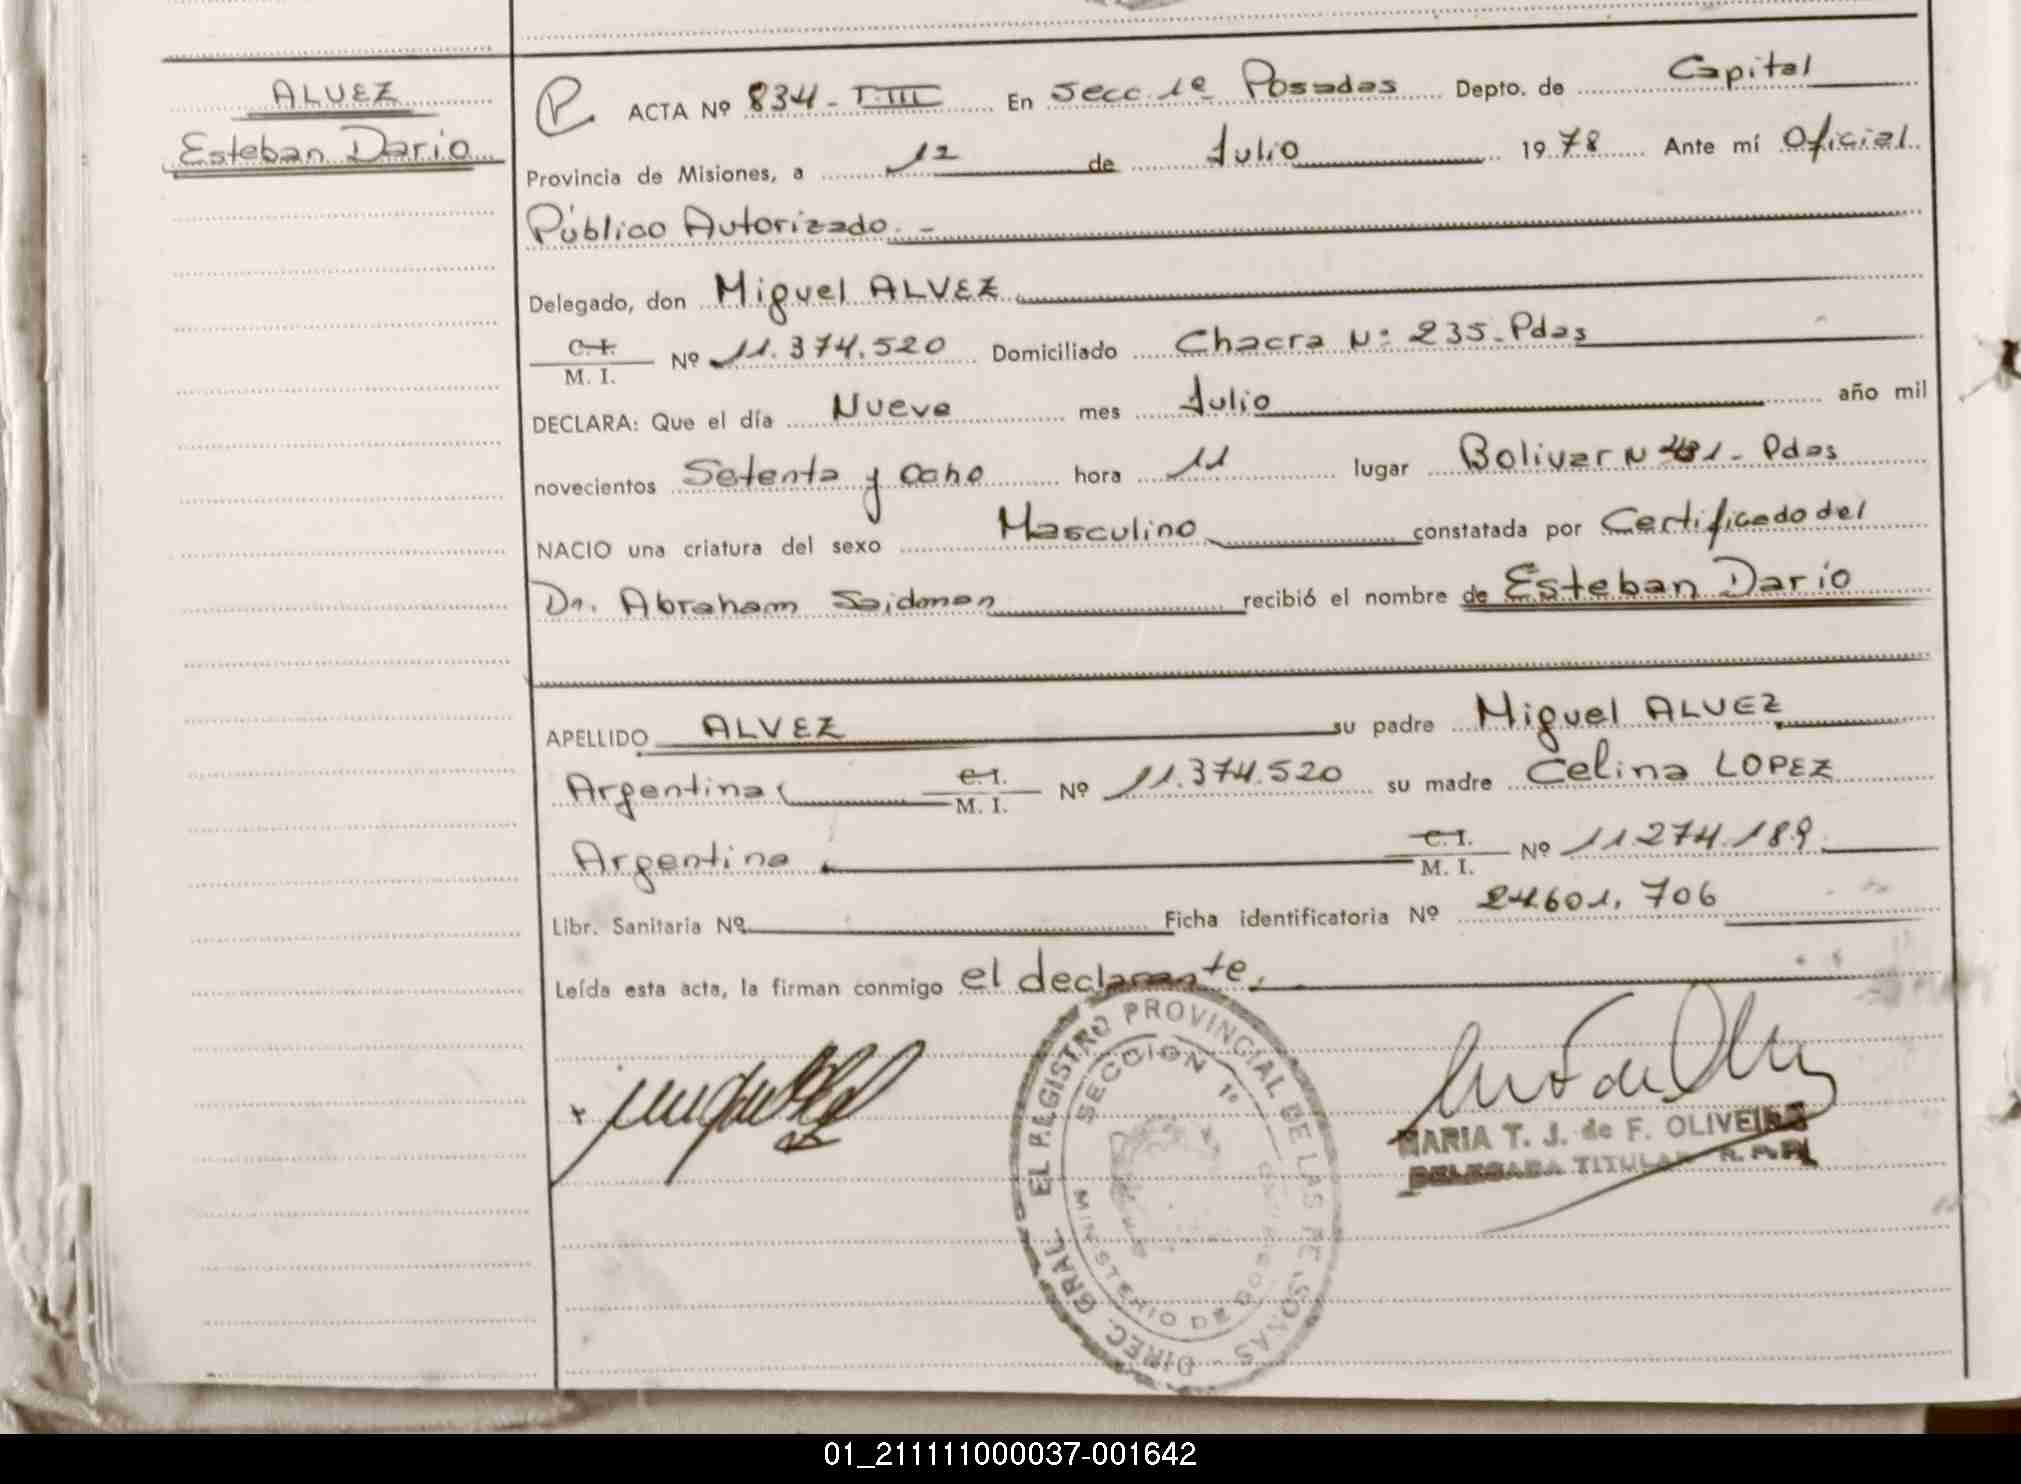 ALVEZ
Esteban Dario
P. ACTA Nº 834 - T. III En secc. 1e Posadas Depto. de Capital
Provincia de Misiones, a 12 de Julio 1978 Ante mí Oficial
Público Autorizado. -
Delegado, don Miguel ALVEZ
C. I.
M. I. Nº 11.374.520 Domiciliado Chacra Nº 235 - Pdas
DECLARA: Que el día Nueve mes Julio año mil
novecientos Setenta y Ocho hora 11 lugar Bolivar N - Pdas
NACIO una criatura del sexo Masculino constatada por Certificado del
Dr. Abraham Saidman recibió el nombre de Esteban Dario
APELLIDO ALVEZ su padre Miguel ALVEZ
Argentina C. I.
M. I. Nº 11.374.520 su madre Celina LOPEZ
Argentina C. I.
M. I. Nº 11.274.189
Libr. Sanitaria Nº Ficha identificatoria Nº 24.601.706
Leída esta acta, la firman conmigo el declarante.
DIREC. GRAL. EL REGISTRO PROVINCIAL DE LAS PERSONAS
SECCION 1º
MINISTERIO DE GOBIERNO
MARIA T. J. de F. OLIVEIRA
DELEGADA TITULAR R. P. P.
01_211111000037-001642